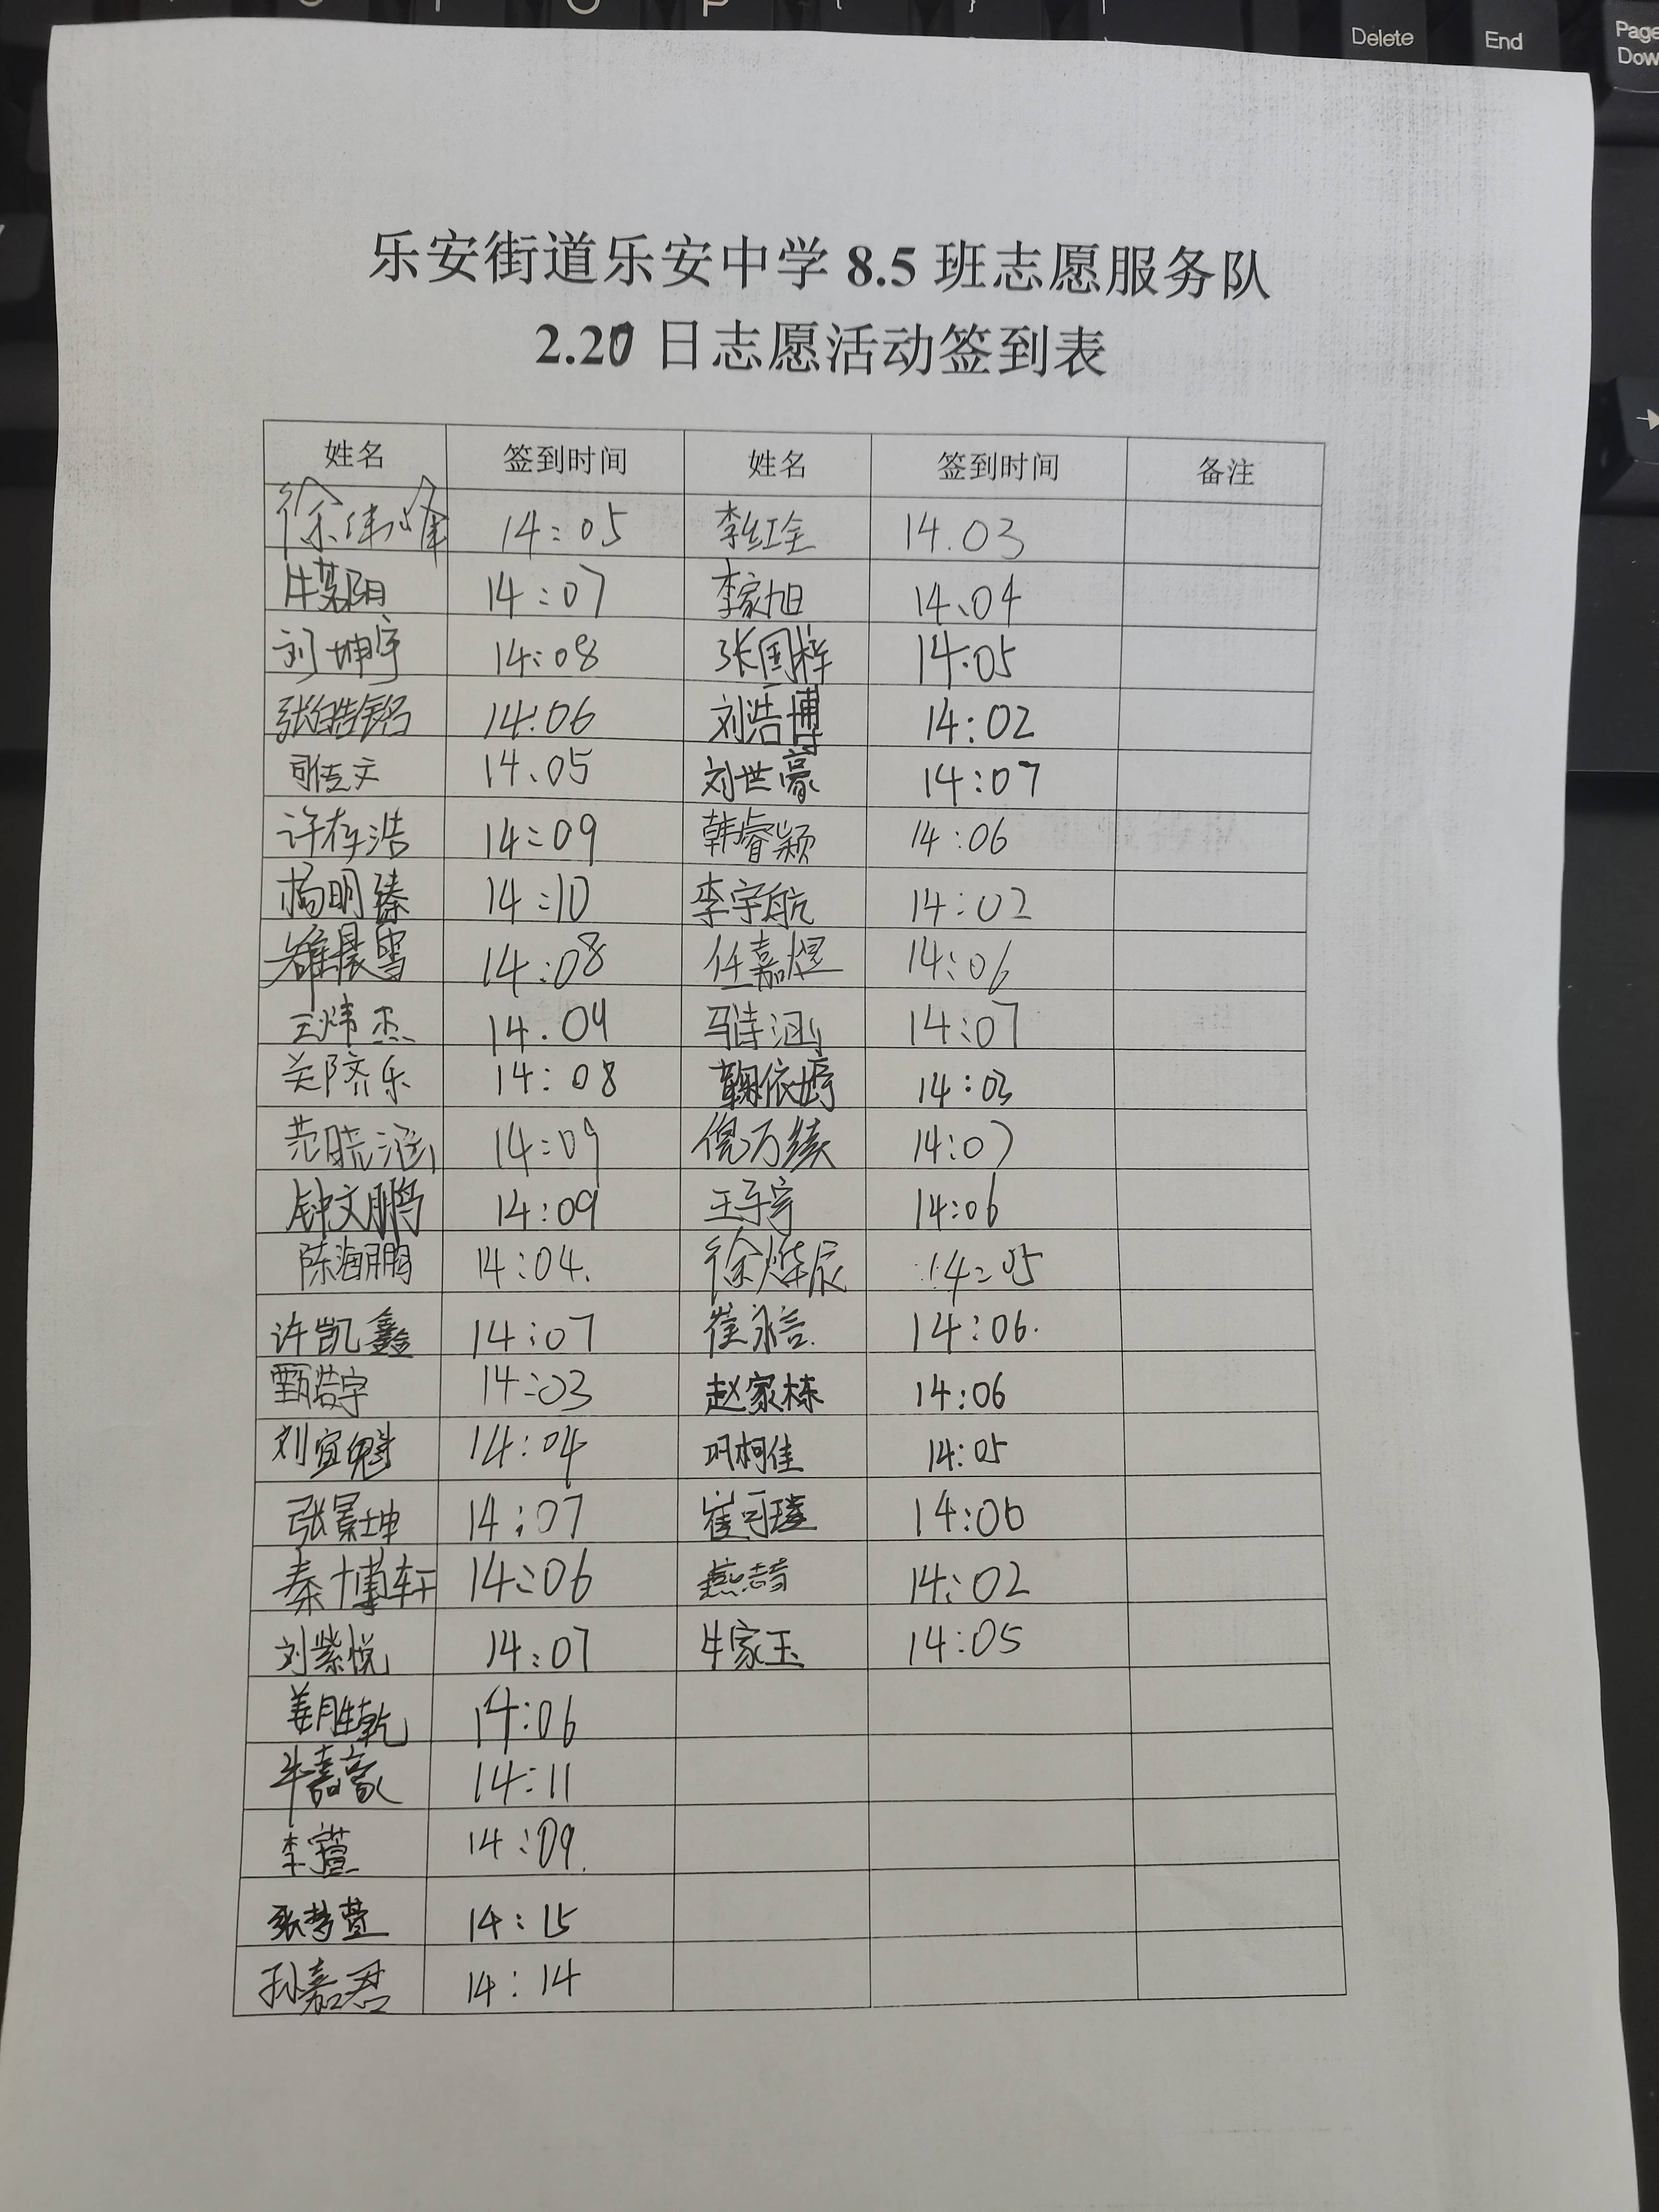 Delete End Page
Down
乐安街道乐安中学 8.5 班志愿服务队
2.20 日志愿活动签到表
姓名 签到时间 姓名 签到时间 备注
徐伟峰 14:05 李红全 14.03
牛慕阳 14:07 李家旭 14.04
刘坤宇 14:08 张国梓 14:05
张皓铭 14:06 刘浩博 14:02
司传文 14.05 刘世豪 14:07
许存浩 14:09 韩睿颖 14:06
杨明臻 14:10 李宇航 14:02
雒晨雪 14:08 任嘉煜 14:06
王炜杰 14.04 马诗涵 14:07
关隋乐 14:08 鞠依婷 14:03
范晓涵 14:09 倪万续 14:07
钟文鹏 14:09 王子宇 14:06
陈海鹏 14:04. 徐烨辰 14:05
许凯鑫 14:07 崔永言. 14:06.
甄浩宇 14:03 赵家栋 14:06
刘宜魁 14:04 巩柯佳 14:05
张景坤 14:07 崔可璇 14:06
秦博轩 14:06 燕喆 14:02
刘紫悦 14:07 牛家玉 14:05
姜胜乾 14:06
牛嘉豪 14:11
李萱 14:09.
张梦萱 14:15
孙嘉君 14:14